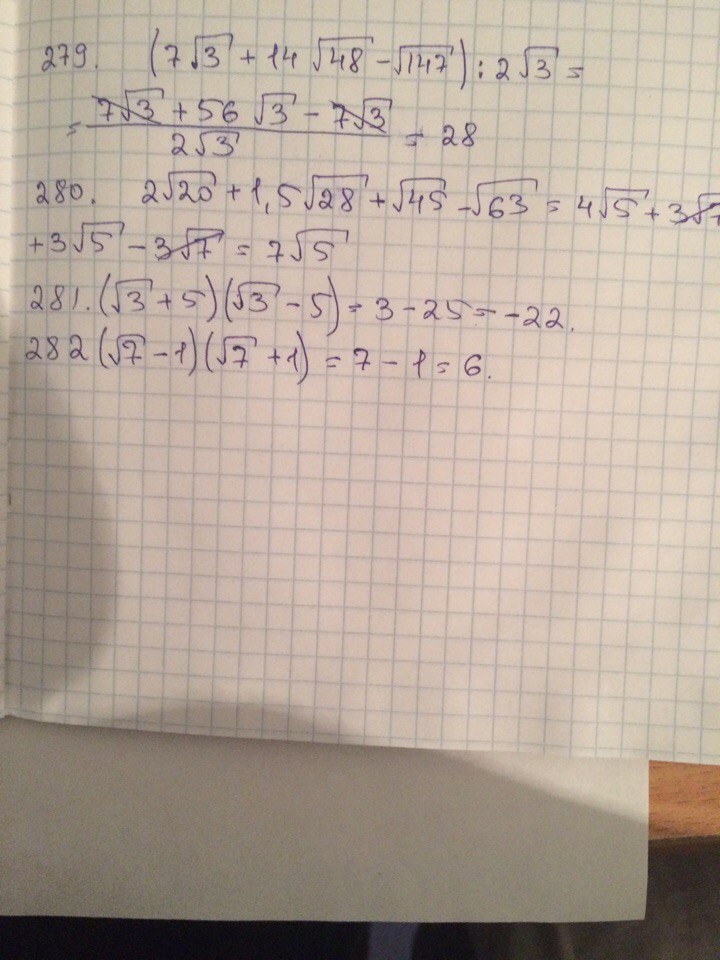 279. (7√3 + 14 √48 - √147) : 2√3 =
= (7√3 + 56 √3 - 7√3) / 2√3 = 28
280. 2√20 + 1,5√28 + √45 - √63 = 4√5 + 3√7
+ 3√5 - 3√7 = 7√5
281. (√3 + 5)(√3 - 5) = 3 - 25 = -22.
282 (√7 - 1)(√7 + 1) = 7 - 1 = 6.